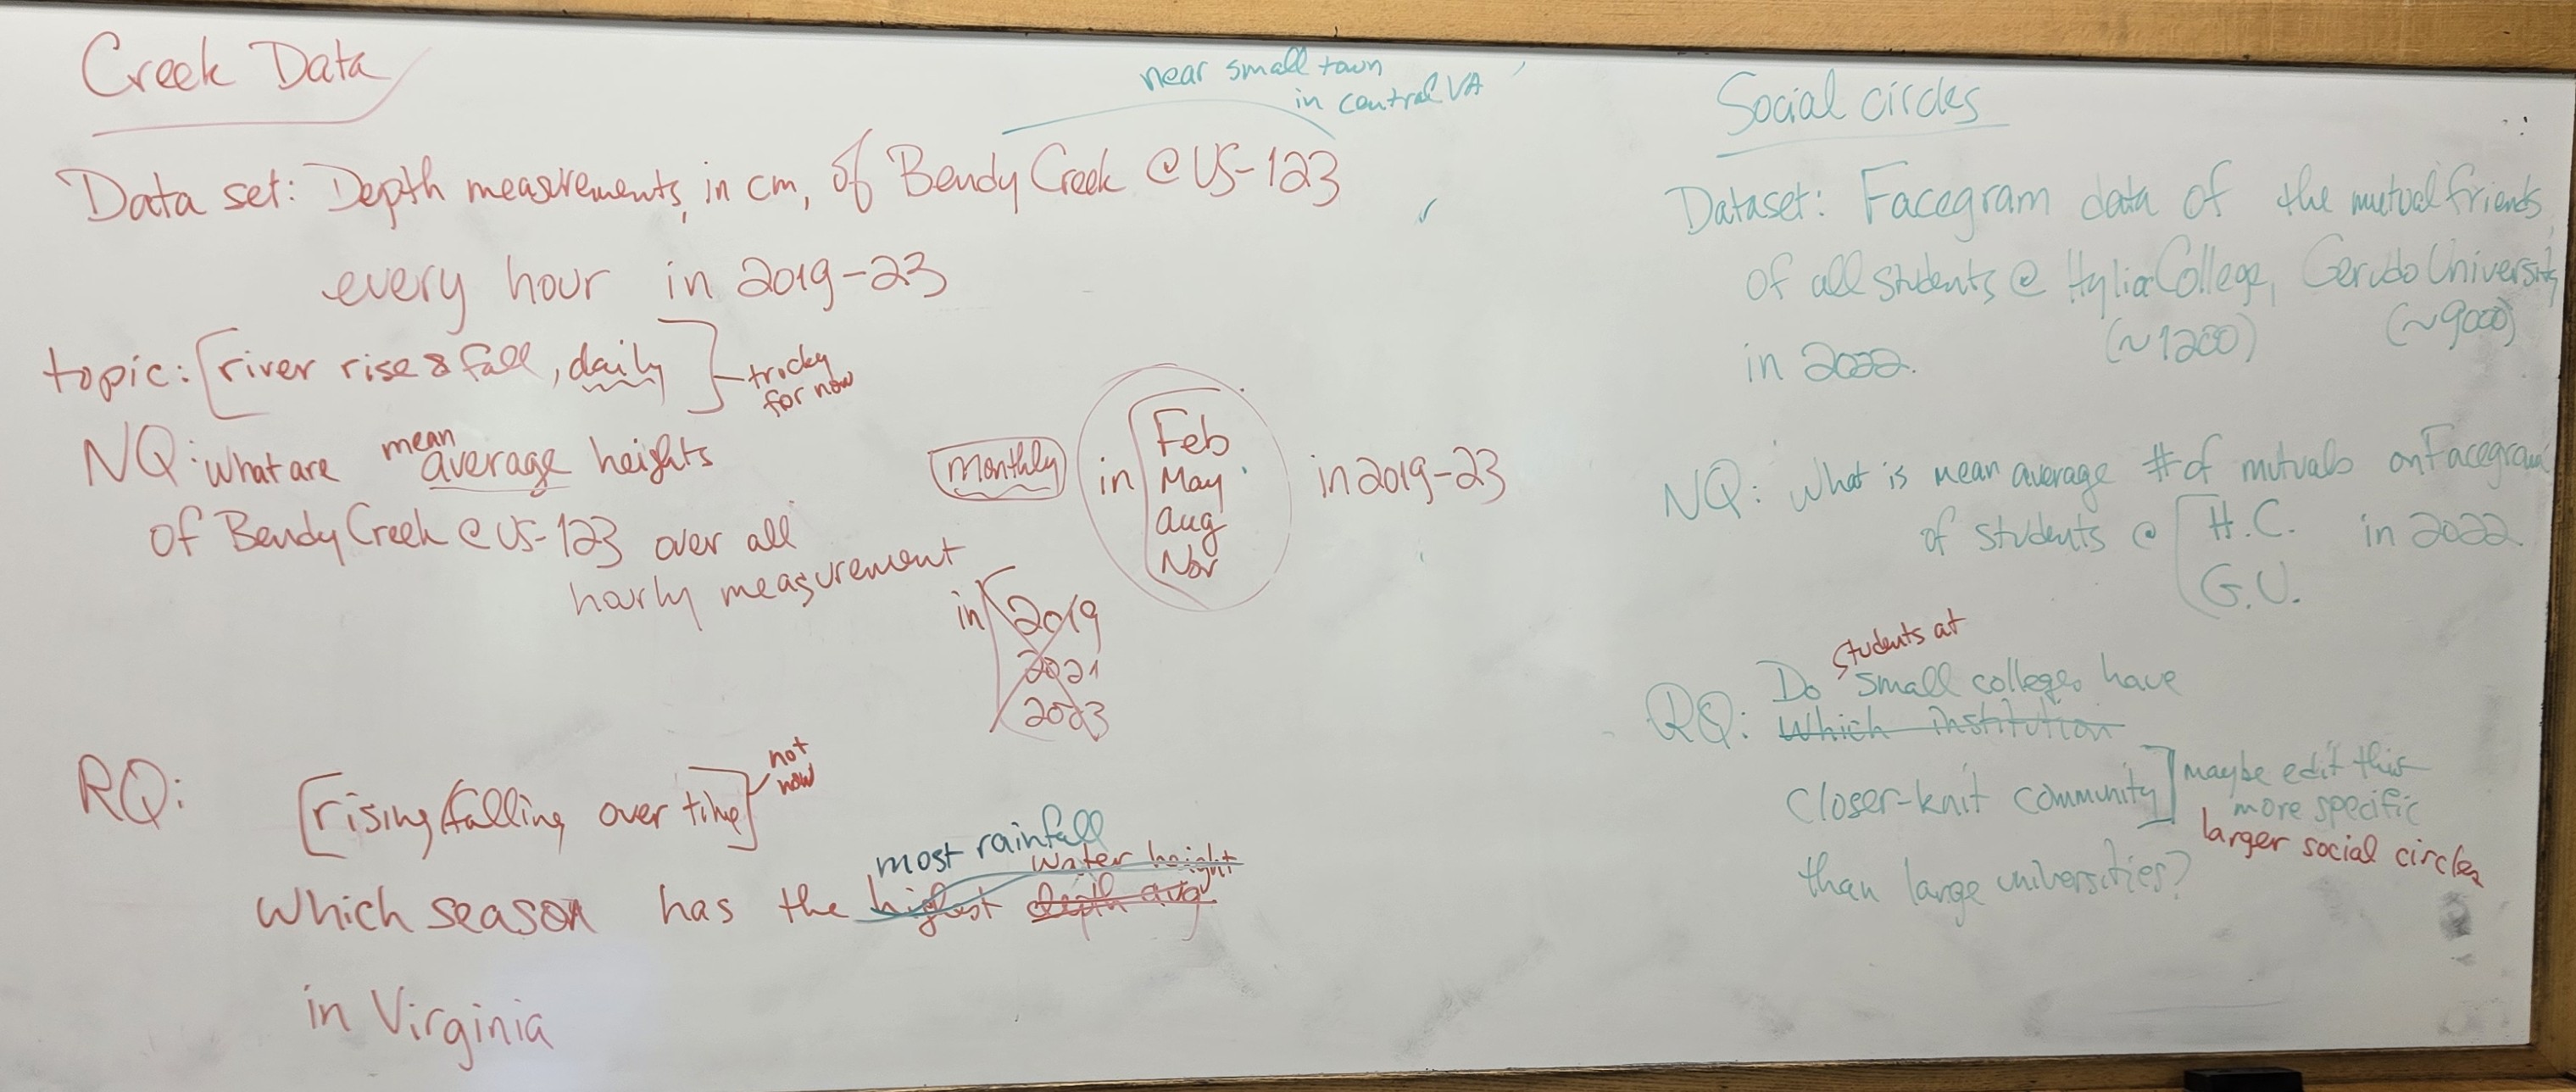 Creek Data
near small town
in central VA
Data set: Depth measurements, in cm, of Bendy Creek @ US-123
every hour in 2019-23
topic: [river rise & fall, daily] tricky
for now
NQ: what are mean average heights
of Bendy Creek @ US-123 over all
hourly measurement
monthly in [Feb
May
Aug
Nov
in 2019-23
in [2019
2021
2023
RQ: [rising/falling over time] not
now
most rainfall
water height
which season has the highest depth avg
in Virginia
Social circles
Dataset: Facegram data of the mutual friends
of all students @ Hylia College, Gerudo University
(~1200) (~9000)
in 2022.
NQ: What is mean average # of mutuals on Facegram
of students @ [H.C. in 2022
G.U.
students at
RQ: Do small colleges have
Which institution
closer-knit community] maybe edit this
more specific
larger social circles
than large universities?